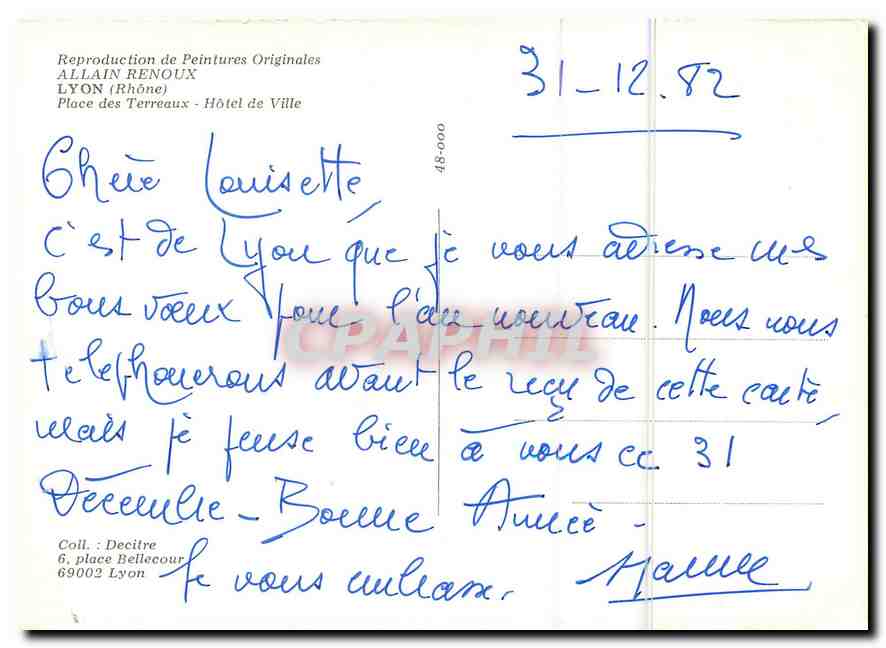 Reproduction de Peintures Originales
ALLAIN RENOUX
LYON (Rhône)
Place des Terreaux - Hôtel de Ville
31-12.82
48-000
Chère Louisette,
C'est de Lyon que je vous adresse mes
bons vœux pour l'an nouveau. Nous vous
telephonerons avant le reçu de cette carte,
mais je pense bien à vous ce 31
Décembre - Bonne Année -
Je vous embrasse.
CPAPHIL
Coll. : Decitre
6, place Bellecour
69002 Lyon